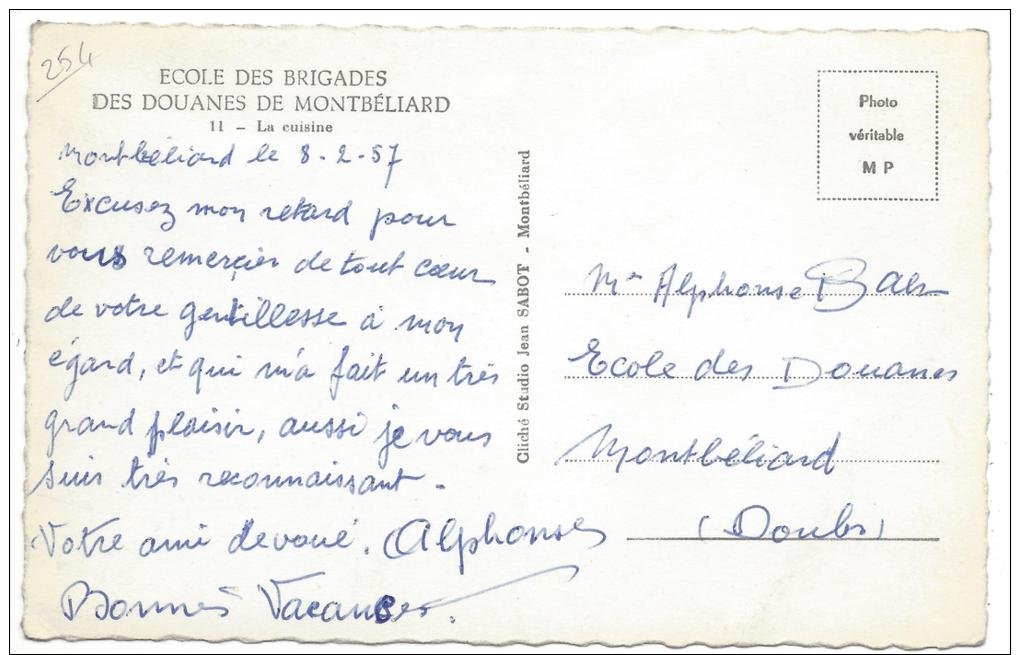 254
ECOLE DES BRIGADES
DES DOUANES DE MONTBÉLIARD
11 – La cuisine
Montbéliard le 8-2-57
Excusez mon retard pour
vous remerçier de tout cœur
de votre gentillesse à mon
égard, et qui m'a fait un très
grand plaisir, aussi je vous
suis très reconnaissant -
Votre ami devoué. Alphonse
Bonnes Vacances.
Cliché Studio Jean SABOT - Montbéliard
Photo
véritable
M P
Alphonse
Ecole des Douanes
Montbéliard
(Doubs)